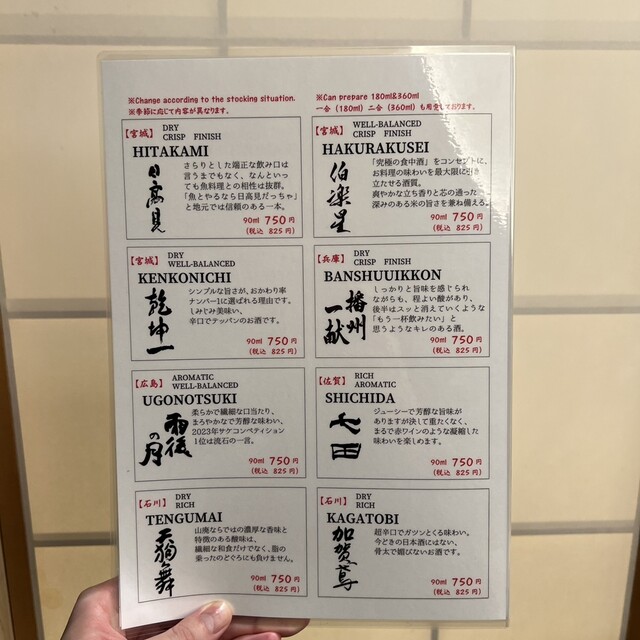 ※Change according to the stocking situation.
※季節に応じて内容が異なります。
※Can prepare 180ml&360ml
一合（180ml）二合（360ml）も用意しております。
【宮城】 DRY
CRISP FINISH
HITAKAMI
日高見
さらりとした端正な飲み口は
言うまでもなく、なんといっ
ても魚料理との相性は抜群。
「魚とやるなら日高見だっちゃ」
と地元では信頼のある一本。
90ml 750円
(税込 825円)
【宮城】 WELL-BALANCED
CRISP FINISH
HAKURAKUSEI
伯楽星
「究極の食中酒」をコンセプトに、
お料理の味わいを最大限に引き
立たせる酒質。
爽やかな立ち香りと芯の通った
深みのある米の旨さを兼ね備える。
90ml 750円
(税込 825円)
【宮城】 DRY
WELL-BALANCED
KENKONICHI
乾坤一
シンプルな旨さが、おかわり率
ナンバー1に選ばれる理由です。
しみじみ美味い、
辛口でテッパンのお酒です。
90ml 750円
(税込 825円)
【兵庫】 DRY
CRISP FINISH
BANSHUUIKKON
播州
一献
しっかりと旨味を感じられ
ながらも、程よい酸があり、
後半はスッと消えていくような
「もう一杯飲みたい」と
思うようなキレのある酒。
90ml 750円
(税込 825円)
【広島】 AROMATIC
WELL-BALANCED
UGONOTSUKI
雨後
の月
柔らかで繊細な口当たり、
まろやかなで芳醇な味わい、
2023年サケコンペティション
1位は流石の一言。
90ml 750円
(税込 825円)
【佐賀】 RICH
AROMATIC
SHICHIDA
七田
ジューシーで芳醇な旨味が
ありますが決して重たくなく、
まるで赤ワインのような凝縮した
味わいを楽しめます。
90ml 750円
(税込 825円)
【石川】 DRY
RICH
TENGUMAI
天狗舞
山廃ならではの濃厚な香味と
特徴のある酸味は、
繊細な和食だけでなく、脂の
乗ったのどぐろにも負けません。
90ml 750円
(税込 825円)
【石川】 DRY
RICH
KAGATOBI
加賀鳶
超辛口でガツンとくる味わい。
今どきの日本酒にはない、
骨太で媚びないお酒です。
90ml 750円
(税込 825円)